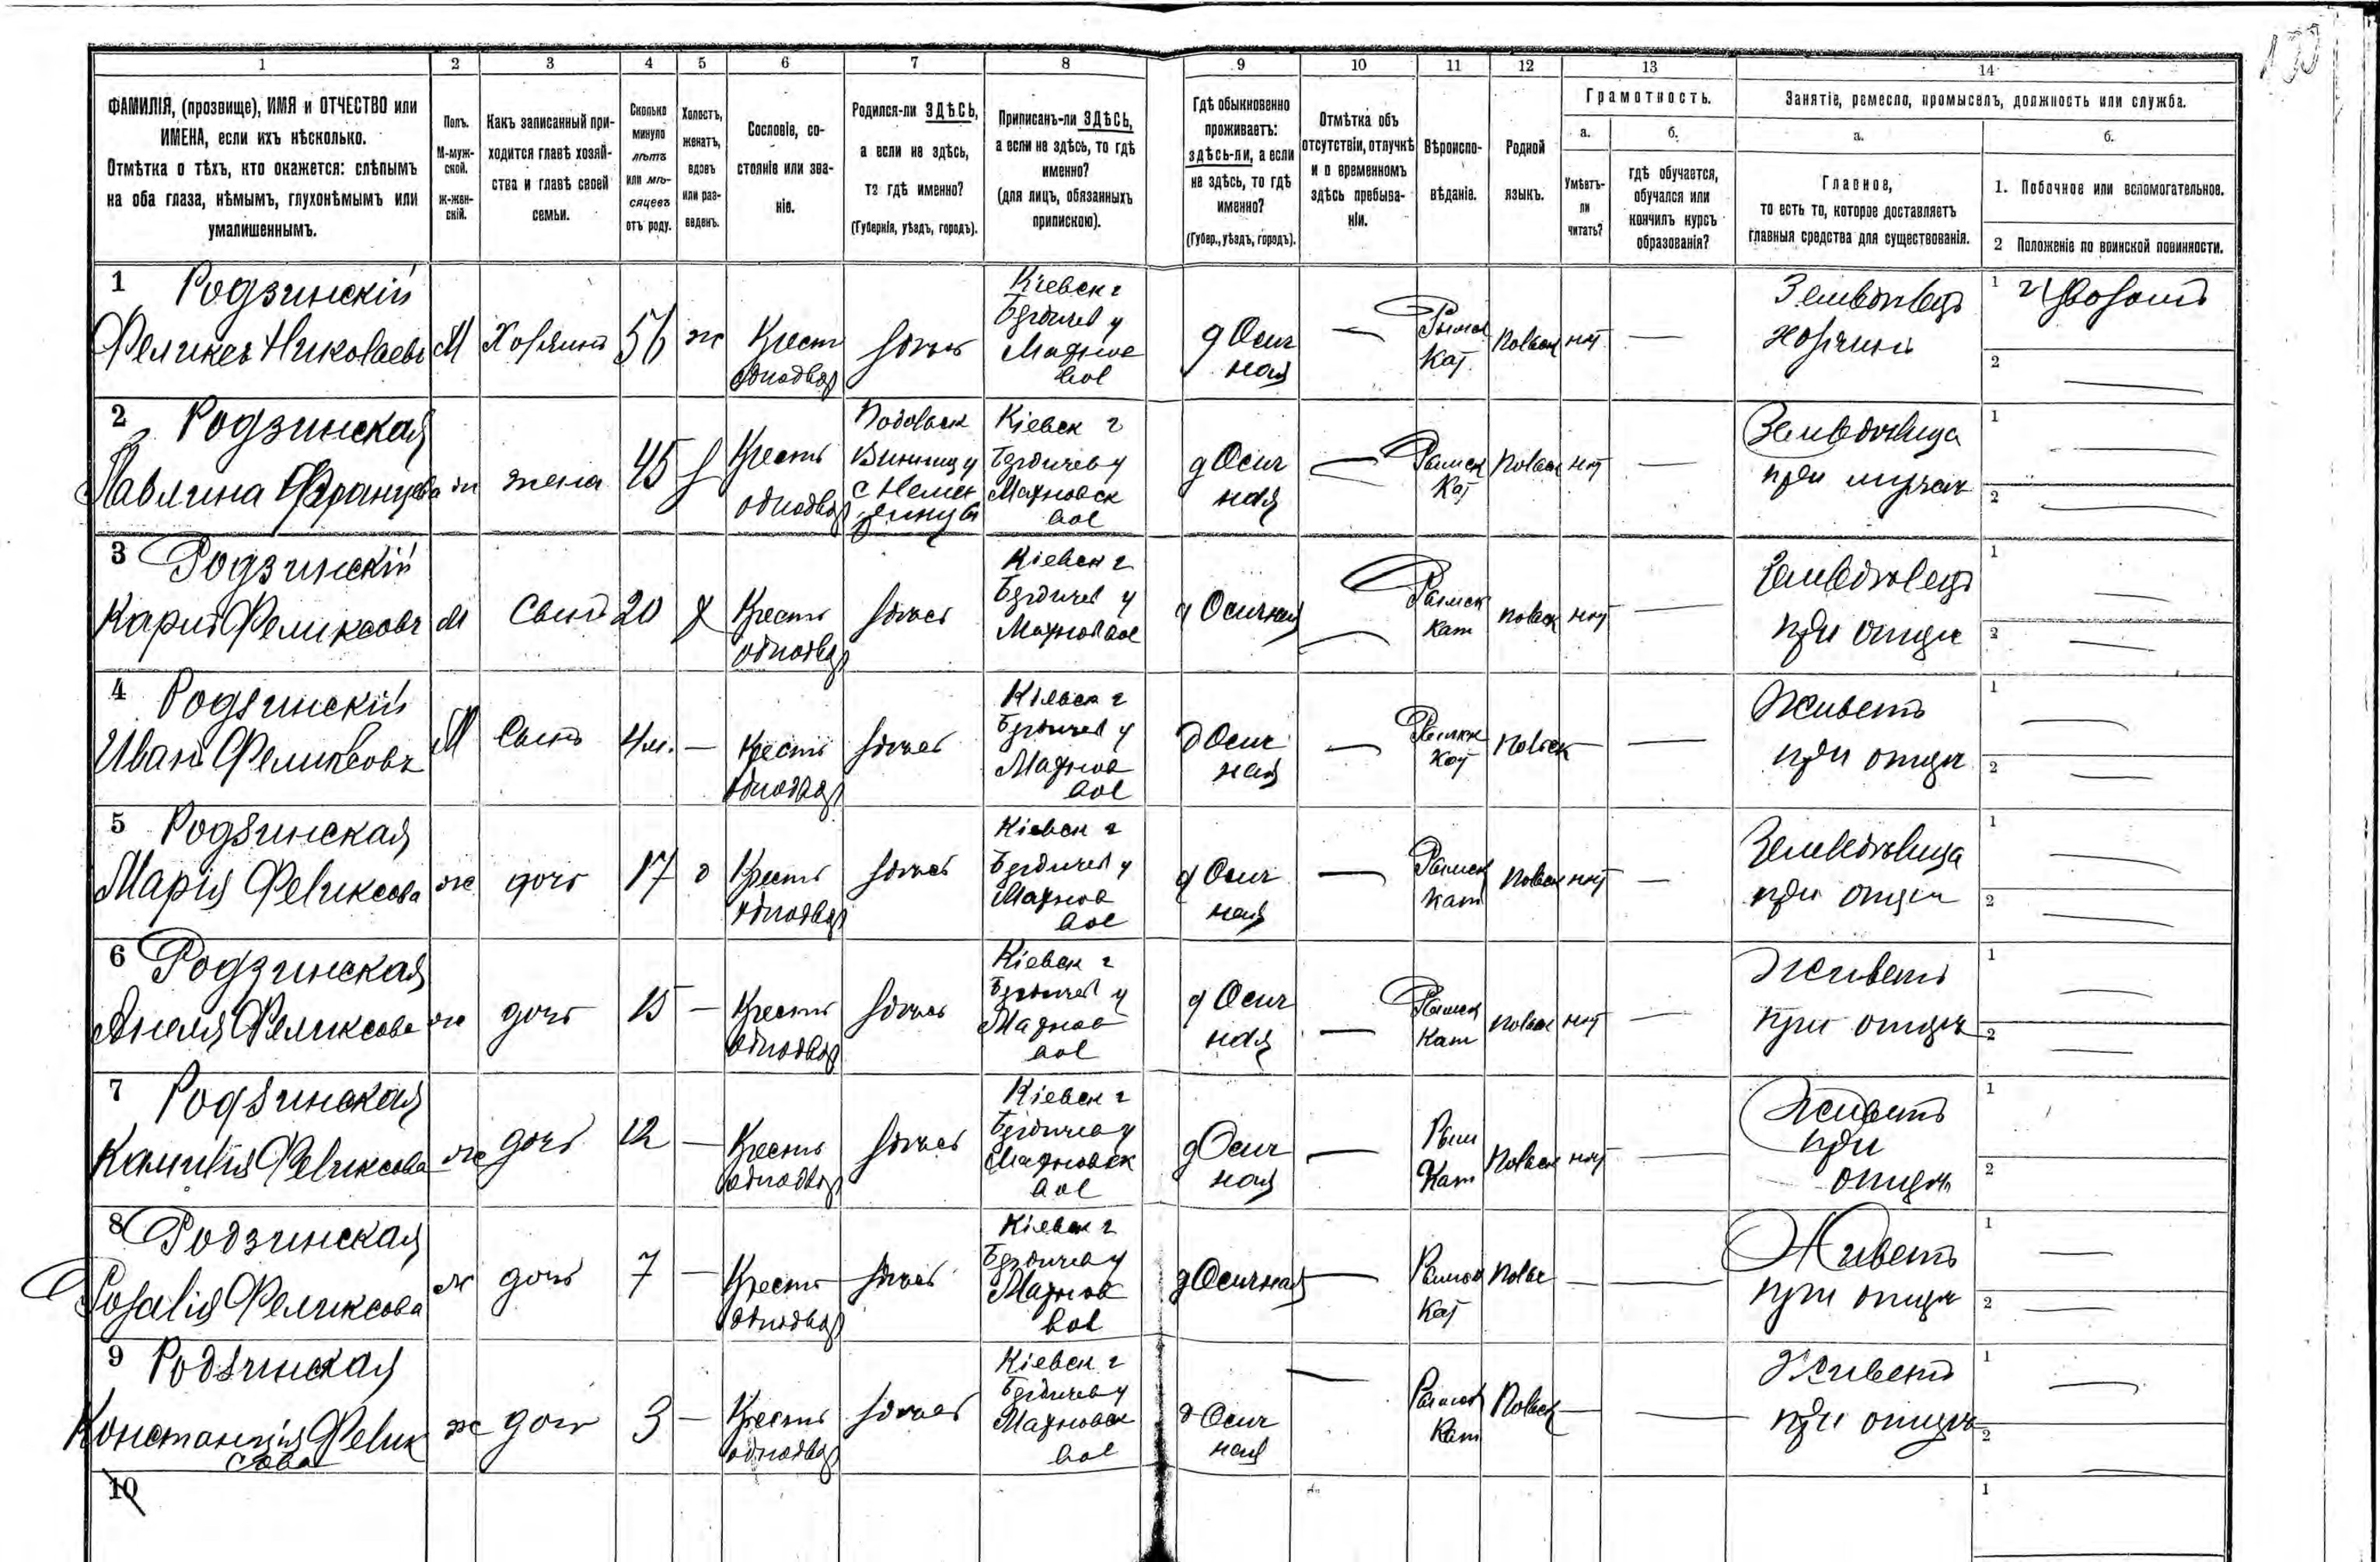 133
1
2
3
4
5
6
7
8
9
10
11
12
13
14
ФАМИЛІЯ, (прозвище), ИМЯ и ОТЧЕСТВО или
ИМЕНА, если ихъ нѣсколько.
Отмѣтка о тѣхъ, кто окажется: слѣпымъ
на оба глаза, нѣмымъ, глухонѣмымъ или
умалишеннымъ.
Полъ.
М-муж-
ской.
Ж-жен-
скій.
Какъ записанный при-
ходится главѣ хозяй-
ства и главѣ своей
семьи.
Сколько
минуло
лѣтъ
или мѣ-
сяцевъ
отъ роду.
Холостъ,
женатъ,
вдовъ
или раз-
веденъ.
Сословіе, со-
стояніе или зва-
ніе.
Родился-ли ЗДѢСЬ,
а если не здѣсь,
то гдѣ именно?
(Губернія, уѣздъ, городъ).
Приписанъ-ли ЗДѢСЬ,
а если не здѣсь, то гдѣ
именно?
(для лицъ, обязанныхъ
припискою).
Гдѣ обыкновенно
проживаетъ:
здѣсь-ли, а если
не здѣсь, то гдѣ
именно?
(Губер., уѣздъ, городъ).
Отмѣтка объ
отсутствіи, отлучкѣ
и о временномъ
здѣсь пребыва-
ніи.
Вѣроиспо-
вѣданіе.
Родной
языкъ.
Грамотность.
а.
Умѣетъ-
ли
читать?
б.
гдѣ обучается,
обучался или
кончилъ курсъ
образованія?
Занятіе, ремесло, промыселъ, должность или служба.
а.
Главное,
то есть то, которое доставляетъ
главныя средства для существованія.
б.
1. Побочное или вспомогательное.
2 Положеніе по воинской повинности.
1 Родзинскій
Феликсъ Николаевъ
М
Хозяинъ
56
ж
Крест
однодвор
здѣсь
Кіевск г
Бердичев у
Махнов
вол
д Осич
ная
—
Римск
Кат
Польск
нѣт
—
Земледѣлецъ
хозяинъ
1
2 —
2 Родзинская
Павлина Францева
ж
жена
45
з
Кресть
однодвор
Подольск
Винниц у
Кіевск г
Бердичев у
Махновск
вол
д Осич
ная
—
Римск
Кат
Польск
нѣт
—
Земледѣлица
при мужѣ
1 —
2 —
3 Родзинскій
Карпъ Феликсовъ
М
Сынъ
20
х
Кресть
однодвор
здѣсь
Кіевск г
Бердичев у
Махнов вол
д Осичная
—
Римск
Кат
Польск
нѣт
—
Земледѣлецъ
при отцѣ
1 —
2 —
4 Родзинскій
Иванъ Феликсовъ
М
Сынъ
4 м.
—
Кресть
однодвор
здѣсь
Кіевск г
Бердичев у
Махнов
вол
д Осич
ная
—
Римск
Кат
Польск
—
—
Живетъ
при отцѣ
1 —
2 —
5 Родзинская
Марія Феликсова
ж
дочь
17
д
Кресть
однодвор
здѣсь
Кіевск г
Бердичев у
Махнов
вол
д Осич
ная
—
Римск
Кат
Польск
нѣт
—
Земледѣлица
при отцѣ
1 —
2 —
6 Родзинская
Анеля Феликсова
ж
дочь
15
—
Кресть
однодвор
здѣсь
Кіевск г
Бердичев у
Махнов
вол
д Осич
ная
—
Римск
Кат
Польск
нѣт
—
Живетъ
при отцѣ
1 —
2 —
7 Родзинская
Камилія Феликсова
ж
дочь
12
—
Кресть
однодвор
здѣсь
Кіевск г
Бердичев у
Махновск
вол
д Осич
ная
—
Рим
Кат
Польск
нѣт
—
Живетъ
при
отцѣ
1
2
8 Родзинская
Розалія Феликсова
ж
дочь
7
—
Кресть
однодвор
здѣсь
Кіевск г
Бердичев у
Махнов
вол
д Осичная
—
Римск
Кат
Польс
—
—
Живетъ
при отцѣ
1 —
2 —
9 Родзинская
Константія Феликсова
ж
дочь
3
—
Кресть
однодвор
здѣсь
Кіевск г
Бердичев у
Махновск
вол
д Осич
ная
—
Римск
Кат
Польск
—
—
Живетъ
при отцѣ
1 —
2 —
10
1